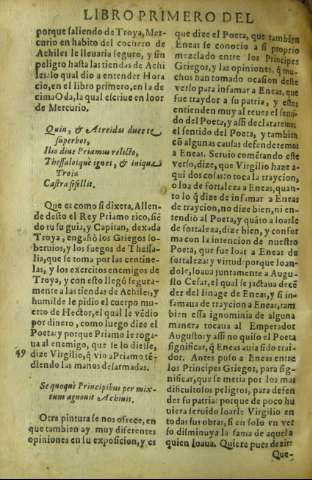 LIBRO PRIMERO DEL
porque saliendo de Troya, Mercurio
en habito del cochero de
Achiles le lleuaria seguro, y sin
peligro hasta las tiendas de Achiles:
lo qual dio a entender Horacio,
en el libro primero, en la decima
Oda, la qual escriue en loor
de Mercurio.
Quin, & Atreidas duce te
superbos,
Ilio diues Priamus relicto,
Thessalosque ignes, & iniqua
Troia
Castra fefellit.
Que es como si dixera, Allende
desto el Rey Priamo rico, siẽdo
tu su guia, y Capitan, dexada
Troya, engañó los Griegos soberuios,
y los fuegos de Thessalia,
que se toma por las centinelas,
y los exercitos enemigos de
Troya, y con esto llegó seguramente
a las tiendas de Achiles, y
humilde le pidio el cuerpo muerto
de Hector, el qual le vẽdio
por dinero, como luego dize el
Poeta: y porque Priamo le rogaua
al enemigo, que se lo diesse,
49 dize Virgilio, q̃ vio a Priamo tẽdiendo
las manos desarmadas.
Se quoque Principibus permixtum
agnouit Achiuis.
Otra pintura se nos ofrece, en
que tambien ay muy diferentes
opiniones en su exposicion, y es
que dize el Poeta, que tambien
Eneas se conocio a si proprio
mezclado entre los Principes
Griegos, y las opiniones, q̃ muchos
han tomado ocasion deste
verso para infamar a Eneas, que
fue traydor a su patria, y estos
entienden muy al reues el sentido
del Poeta, y assi declararemos
el sentido del Poeta, y tambien
cõ algunas causas defenderemos
a Eneas. Seruio comẽtando este
verso, dize, que Virgilio haze aqui
dos cosas: o toca la traycion,
o loa de fortaleza a Eneas, quanto
lo q̃ dize de infamar a Eneas
de traycion, no dize bien, ni entendio
al Poeta, y quãto a loarle
de fortaleza, dize bien, y conforma
con la intencion de nuestro
Poeta, que fue loar a Eneas de
fortaleza y virtud: porque loandole,
loaua juntamente a Augusto
Cesar, el qual se jactaua decẽder
del linage de Eneas, y si infamaua
de traycion a Eneas, tambien
esta ignominia de alguna
manera tocaua al Emperador
Augusto: y assi no quiso el Poeta
significar, q̃ Eneas auia sido traidor.
Antes puso a Eneas entre
los Principes Griegos, para significar,
que se metia por los mas
dificultosos peligros, para defender
su patria: porque de poco huuiera
seruido loarle Virgilio en
todas sus obras, si en solo vn verso
disminuya la fama de aquel a
quien loaua. Quiere pues dezir
Que-